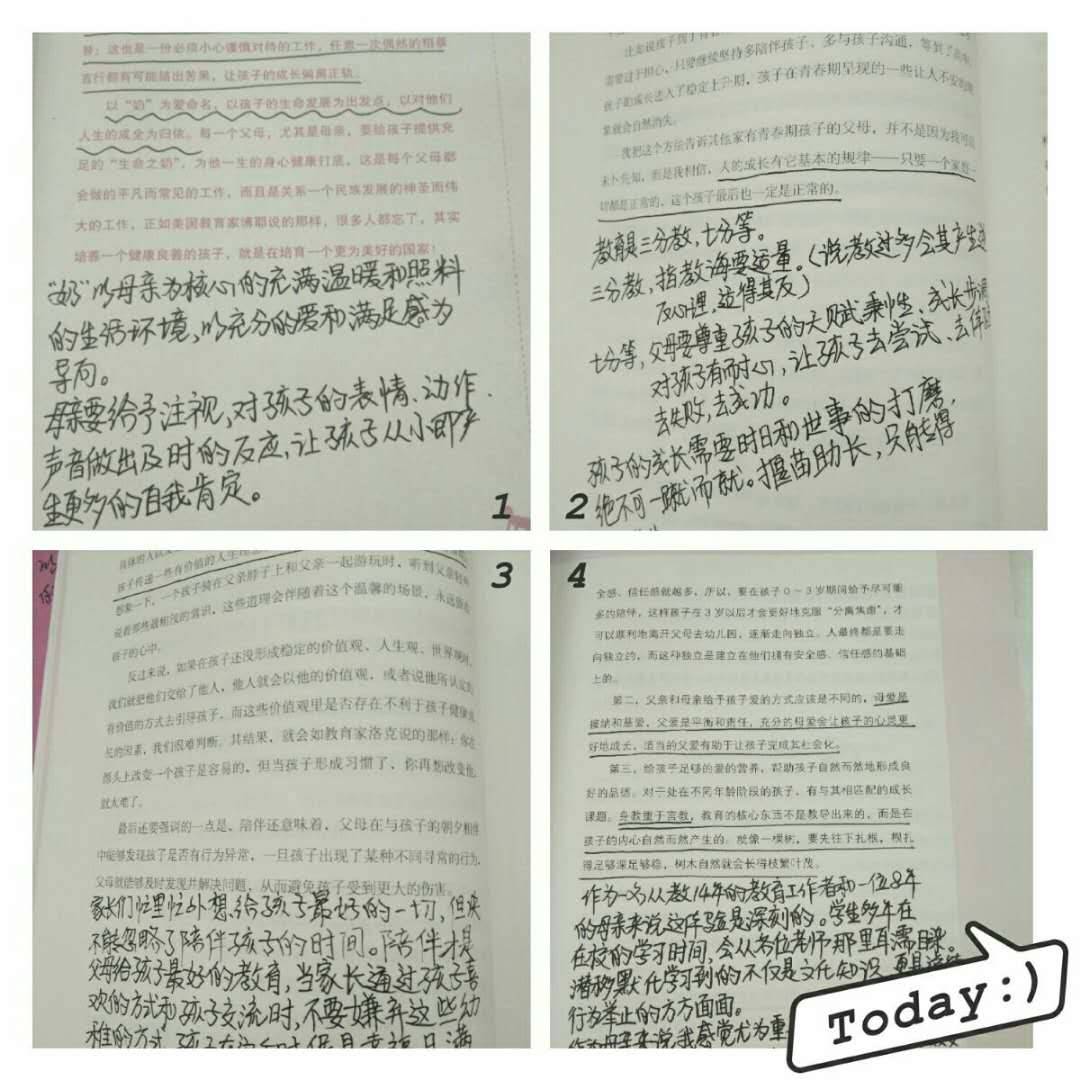 替；这也是一份必须小心谨慎对待的工作，任意一次偶然的粗暴
言行都有可能结出苦果，让孩子的成长偏离正轨。
以“奶”为爱命名，以孩子的生命发展为出发点，以对他们
人生的成全为归依。每一个父母，尤其是母亲，要给孩子提供充
足的“生命之奶”，为他一生的身心健康打底，这是每个父母都
会做的平凡而常见的工作，而且是关系一个民族发展的神圣而伟
大的工作，正如美国教育家博耶说的那样，很多人都忘了，其实
培养一个健康良善的孩子，就是在培育一个更为美好的国家！
“奶”以母亲为核心的充满温暖和照料
的生活环境，以充分的爱和满足感为
导向。
母亲要给予注视，对孩子的表情、动作、
声音做出及时的反应，让孩子从小即产
生更多的自我肯定。
1
需要过于担心，只要继续坚持多陪伴孩子，多与孩子沟通，等到了
孩子的成长进入了稳定上升期，孩子在青春期呈现的一些让人不安的现
象就会自然消失。
我把这个方法告诉其他家有青春期孩子的父母，并不是因为我可以
未卜先知，而是我相信，人的成长有它基本的规律——只要一个家庭一
切都是正常的，这个孩子最后也一定是正常的。
教育是三分教，七分等。
三分教，指教诲要适量。（说教过多会其产生逆
反心理，适得其反）
七分等，父母要尊重孩子的天赋秉性、成长步调
对孩子有耐心，让孩子去尝试、去体验
去失败，去成功。
孩子的成长需要时日和世事的打磨，
绝不可一蹴而就。揠苗助长，只能是得
2
孩子传递一些有价值的人生理念
想象一下，一个孩子骑在父亲脖子上和父亲一起游玩时，听到父亲轻声
说着那些最粗浅的常识，这些道理会伴随着这个温馨的场景，永远留在
孩子的心中。
反过来说，如果在孩子还没形成稳定的价值观、人生观、世界观时，
我们就把他们交给了他人，他人就会以他的价值观，或者说他所认定的
有价值的方式去引导孩子，而这些价值观里是否存在不利于孩子健康成
长的因素，我们很难判断。其结果，就会如教育家洛克说的那样：你在
源头上改变一个孩子是容易的，但当孩子形成习惯了，你再想改变他，
就太难了。
最后还要强调的一点是，陪伴还意味着，父母在与孩子的朝夕相处
中能够发现孩子是否有行为异常，一旦孩子出现了某种不同寻常的行为，
父母就能够及时发现并解决问题，从而避免孩子受到更大的伤害。
家长们忙里忙外想给孩子最好的一切，但决
不能忽略了陪伴孩子的时间。陪伴才是
父母给孩子最好的教育，当家长通过孩子喜
欢的方式和孩子交流时，不要嫌弃这些幼
稚的方式
3
4
全感、信任感就越多。所以，要在孩子0～3岁期间给予尽可能
多的陪伴，这样孩子在3岁以后才会更好地克服“分离焦虑”，才
可以顺利地离开父母去幼儿园，逐渐走向独立。人最终都是要走
向独立的，而这种独立是建立在他们拥有安全感、信任感的基础
上的。
第二，父亲和母亲给予孩子爱的方式应该是不同的，母爱是
接纳和慈爱，父爱是平衡和责任，充分的母爱会让孩子的心灵更
好地成长，适当的父爱有助于让孩子完成其社会化。
第三，给孩子足够的爱的营养，帮助孩子自然而然地形成良
好的品德。对于处在不同年龄阶段的孩子，有与其相匹配的成长
课题。身教重于言教，教育的核心东西不是教导出来的，而是在
孩子的内心自然而然产生的。就像一棵树，要先往下扎根，根扎
得足够深足够稳，树木自然就会长得枝繁叶茂。
作为一名从教14年的教育工作者和一位8年
的母亲来说，这体验是深刻的。学生多半在
在校的学习时间，会从各位老师那里耳濡目染。
潜移默化学习到的不仅是文化知识，更是
行为举止的方方面面。
作为母亲来说我感觉尤为重
Today:)